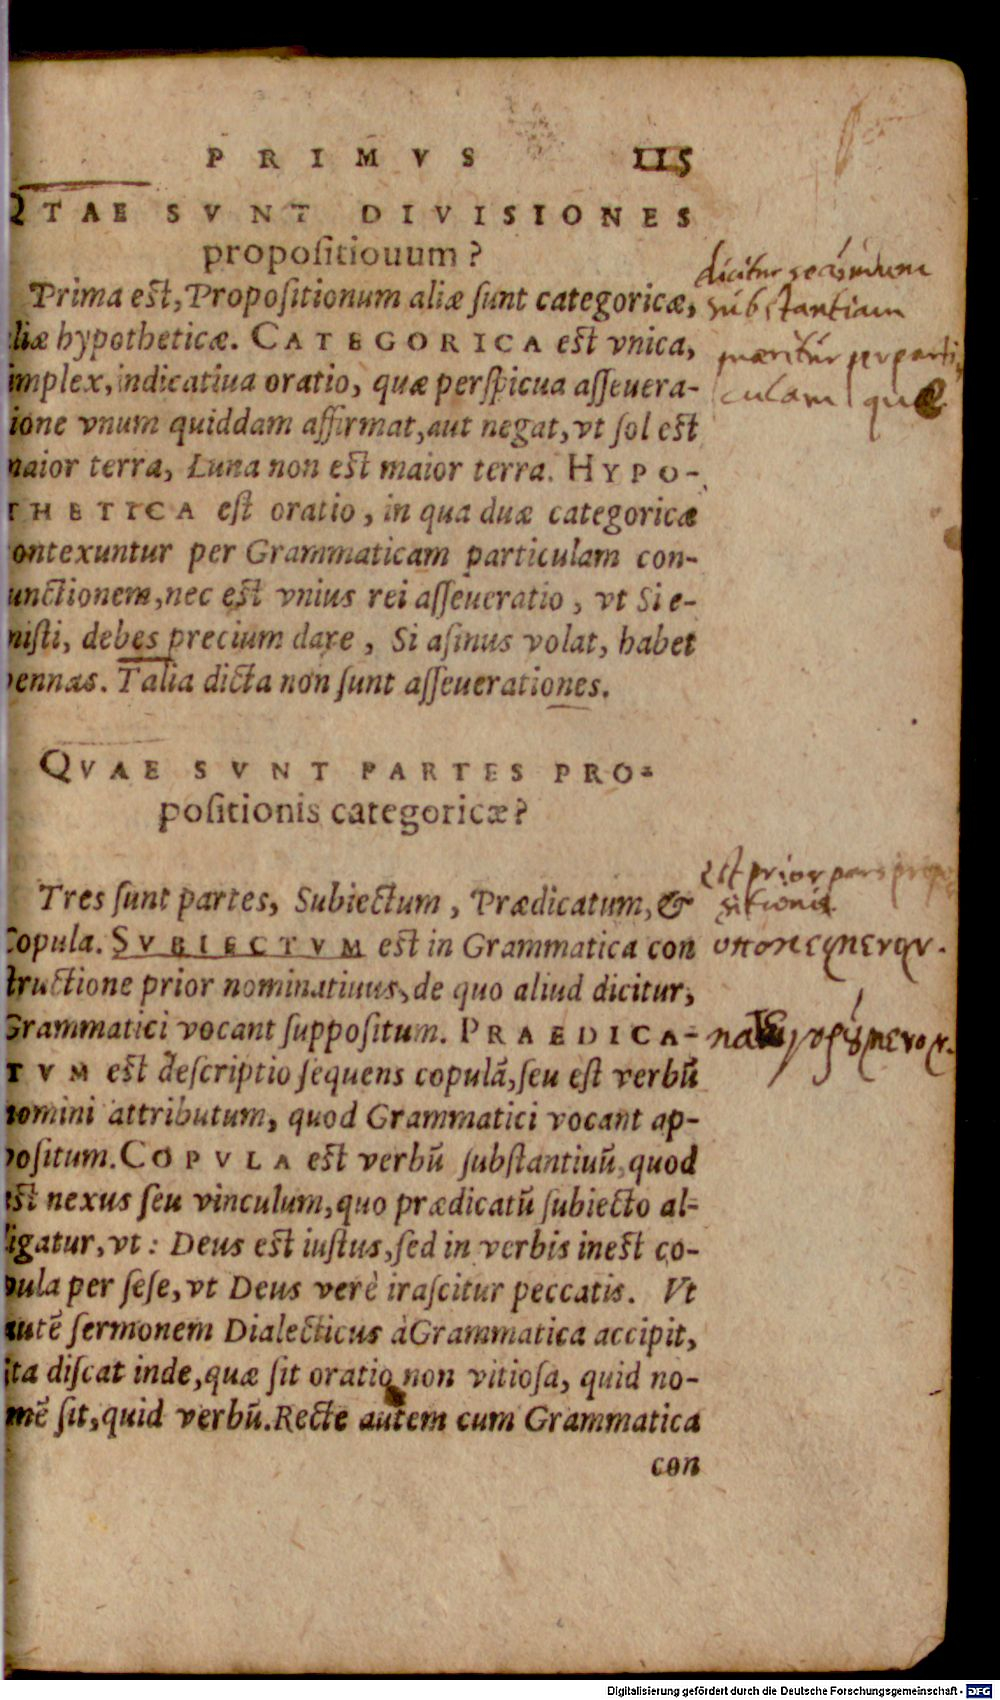 PRIMVS 115
QTAE SVNT DIVISIONES
propositiouum?
Prima est, Propositionum aliæ sunt categoricæ,
liæ hypotheticæ. CATEGORICA est vnica,
implex, indicatiua oratio, quæ perspicua asseuera-
ione vnum quiddam affirmat, aut negat, vt sol est
maior terra, Luna non est maior terra. HYPO-
THETICA est oratio, in qua duæ categoricæ
ontexuntur per Grammaticam particulam con-
unctionem, nec est vnius rei asseueratio, vt Si e-
misti, debes precium dare, Si asinus volat, habet
pennas. Talia dicta non sunt asseuerationes.
dicitur secundum
substantiam
quæritur per parti
culam quæ
QVAE SVNT PARTES PRO-
positionis categoricæ?
Tres sunt partes, Subiectum, Prædicatum, &
Copula. SVBIECTVM est in Grammatica con
structione prior nominatiuus, de quo aliud dicitur,
Grammatici vocant suppositum. PRAEDICA-
TVM est descriptio sequens copulā, seu est verbū
nomini attributum, quod Grammatici vocant ap-
positum. COPVLA est verbū substantiuū, quod
est nexus seu vinculum, quo prædicatū subiecto al-
ligatur, vt: Deus est iustus, sed in verbis inest co-
pula per sese, vt Deus verè irascitur peccatis. Vt
autē sermonem Dialecticus à Grammatica accipit,
ita discat inde, quæ sit oratio non vitiosa, quid no-
mē sit, quid verbū. Recte autem cum Grammatica
con
Est prior pars propo
sitionis
ὑποκείμενον.
κατηγορούμενον.
Digitalisierung gefördert durch die Deutsche Forschungsgemeinschaft - DFG